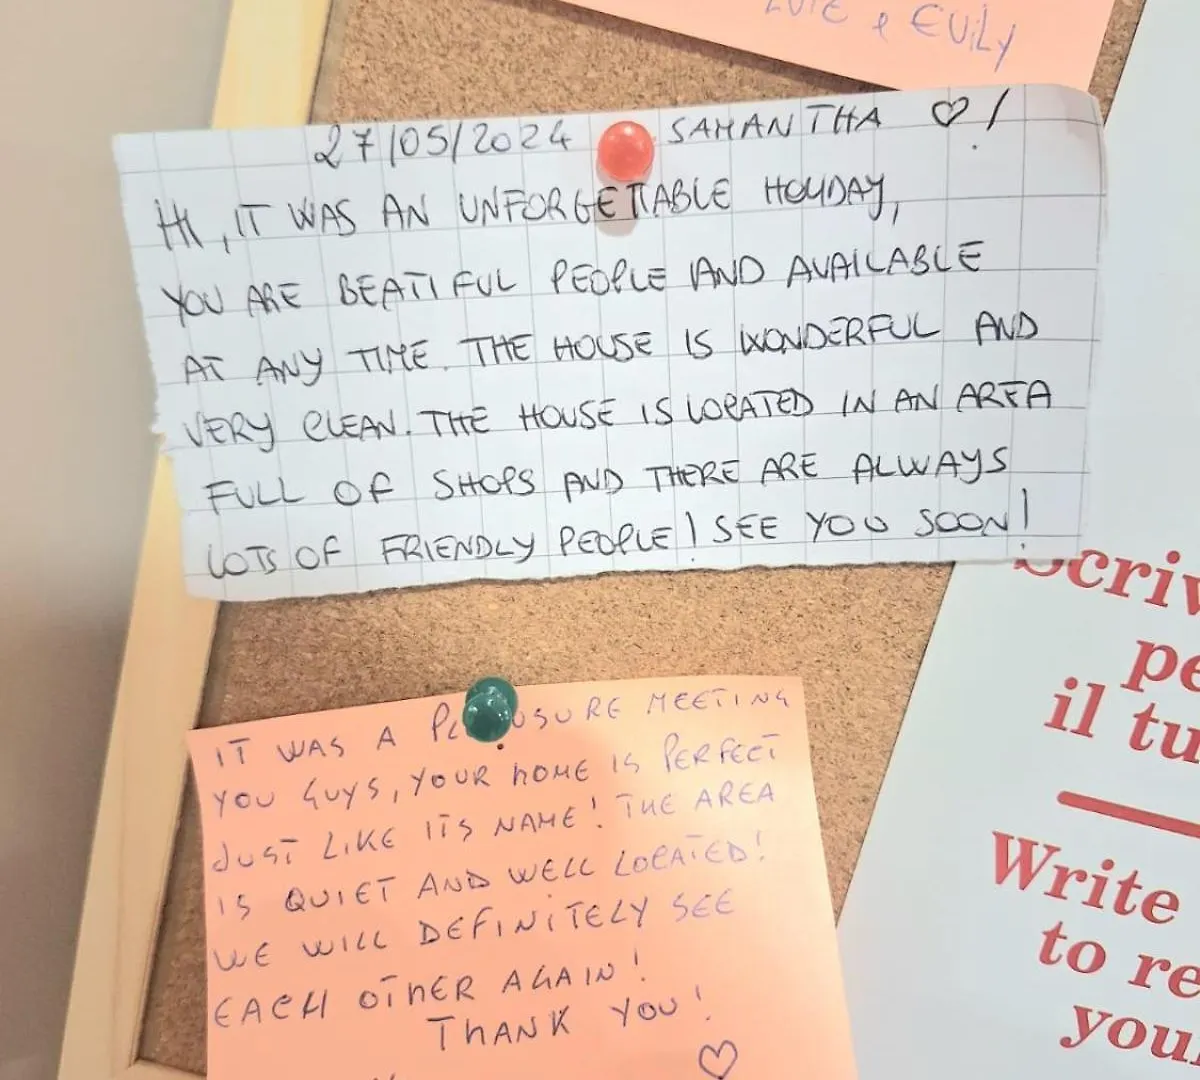 & EVILY
27/05/2024 SAMANTHA ♡!
HI, IT WAS AN UNFORGETTABLE HOLIDAY,
YOU ARE BEATIFUL PEOPLE AND AVAILABLE
AT ANY TIME. THE HOUSE IS WONDERFUL AND
VERY CLEAN. THE HOUSE IS LOCATED IN AN AREA
FULL OF SHOPS AND THERE ARE ALWAYS
LOTS OF FRIENDLY PEOPLE! SEE YOU SOON!
IT WAS A MEETING
YOU GUYS, YOUR HOME IS PERFECT
JUST LIKE ITS NAME! THE AREA
IS QUIET AND WELL LOCATED!
WE WILL DEFINITELY SEE
EACH OTHER AGAIN!
THANK YOU!
♡
Scriv
pe
il tu
Write
to re
your